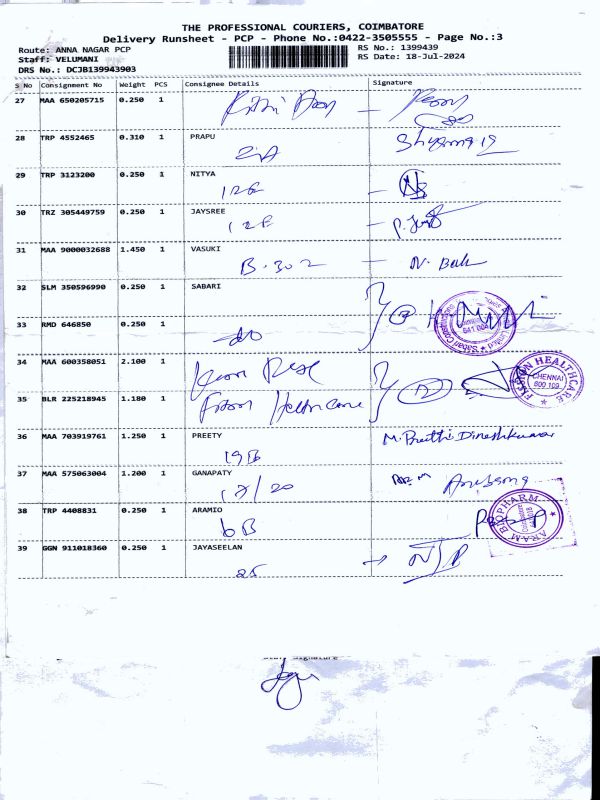 THE PROFESSIONAL COURIERS, COIMBATORE
Delivery Runsheet - PCP - Phone No.:0422-3505555 - Page No.:3
Route: ANNA NAGAR PCP
RS No.: 1399439
Staff: VELUMANI
RS Date: 18-Jul-2024
DRS No.: DCJB139943903
S No Consignment No Weight PCS Consignee Details Signature
27 MAA 650205715 0.250 1
28 TRP 4552465 0.310 1 PRAPU
29 TRP 3123200 0.250 1 NITYA
12E
30 TRZ 305449759 0.250 1 JAYSREE
12E
31 MAA 9000032688 1.450 1 VASUKI
B-302
32 SLM 350596990 0.250 1 SABARI
33 RMD 646850 0.250 1
34 MAA 600358051 2.100 1
35 BLR 225218945 1.180 1
36 MAA 703919761 1.250 1 PREETY
19B M. Preethi Dineshkumar
37 MAA 575063004 1.200 1 GANAPATY
38 TRP 4408831 0.250 1 ARAMIO
6B
39 GGN 911018360 0.250 1 JAYASEELAN
25
FUSION HEALTHCARE
CHENNAI
600 109
ARAM BIOPHARM